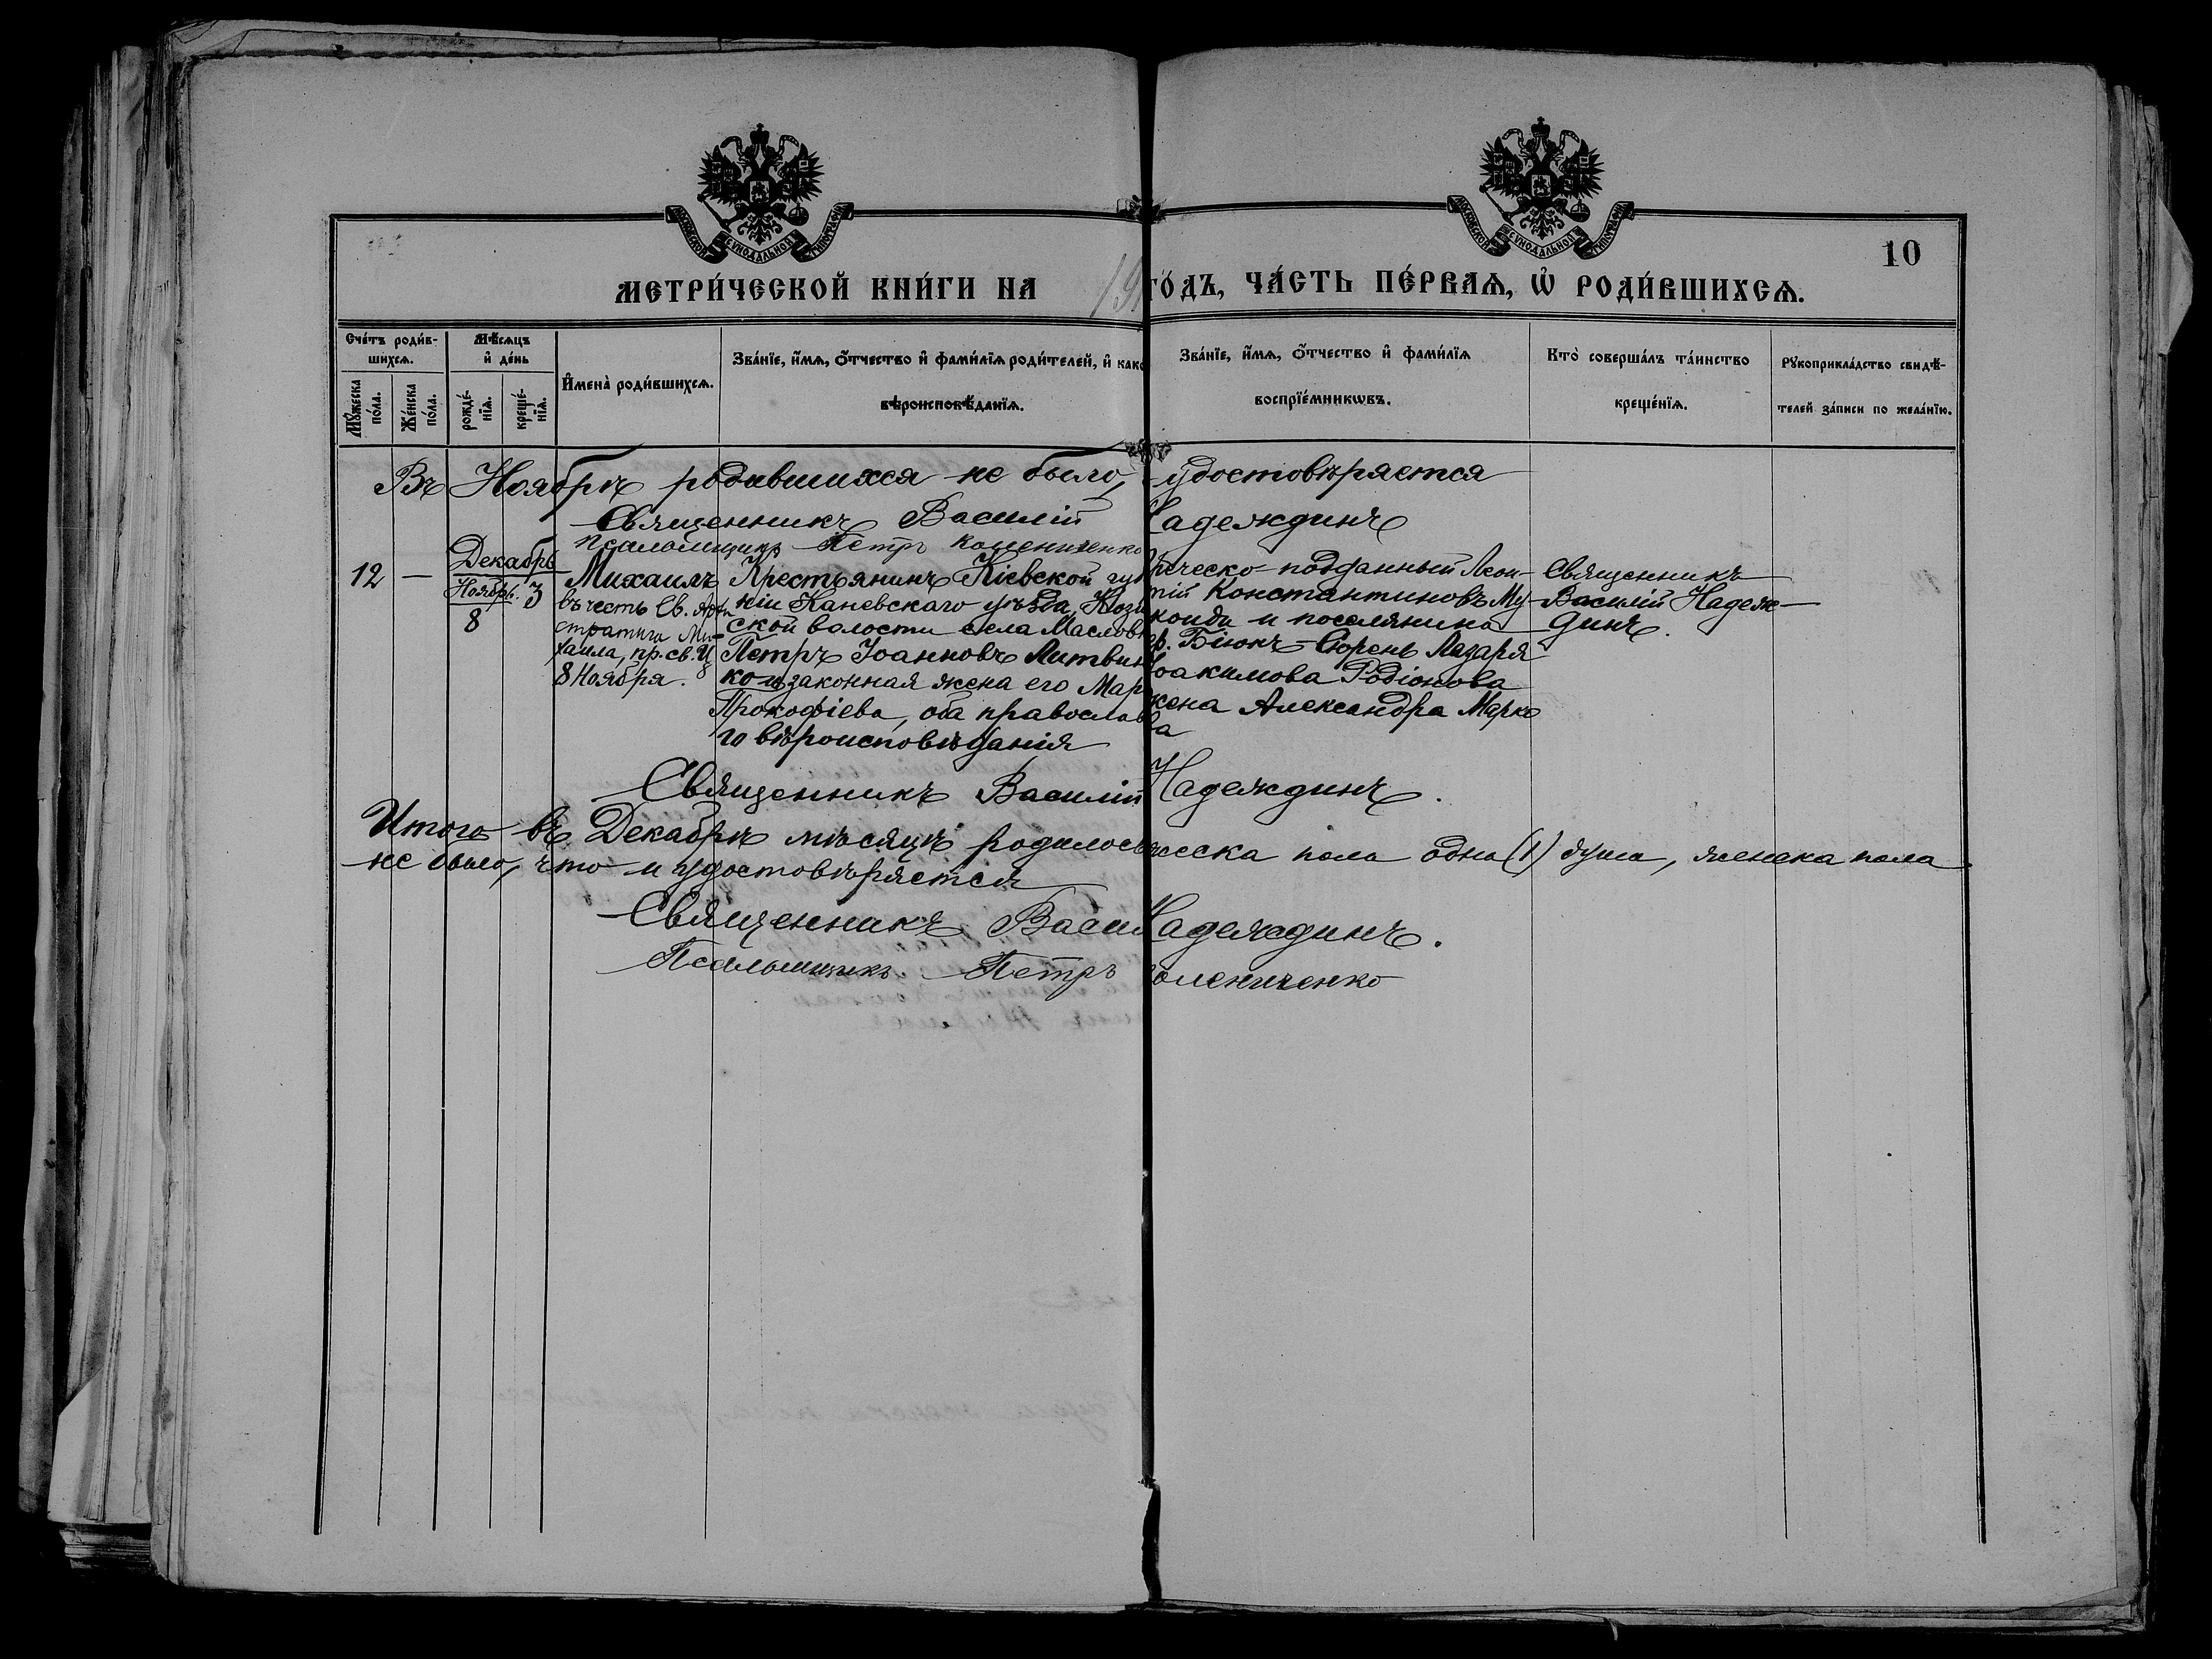 МОСКОВСКОЙ СѴНОДАЛЬНОЙ ТИПОГРАФІИ
МОСКОВСКОЙ СѴНОДАЛЬНОЙ ТИПОГРАФІИ
10
МЕТРИ́ЧЕСКОЙ КНИ́ГИ НА 19 ГО́ДЪ, ЧА́СТЬ ПЕ́РВАѦ, Ѡ҆ РОДИ́ВШИХСѦ.
Сче́тъ роди́в-
шихсѧ.
Мꙋ́жеска по́ла.
Же́нска по́ла.
Мѣ́сѧцъ
и҆ де́нь
рожде́-
нїѧ.
креще́-
нїѧ.
И҆мена̀ роди́вшихсѧ.
Зва́нїе, и҆́мѧ, ѻ҆́тчество и҆ фами́лїѧ роди́телей, и҆ како
вѣроисповѣ́данїѧ.
Зва́нїе, и҆́мѧ, ѻ҆́тчество и҆ фами́лїѧ
воспрїе́мникѡвъ.
Кто̀ соверша́лъ та́инство
креще́нїѧ.
Рꙋкоприкла́дство свидѣ́-
телей за́писи по жела́нїю.
Въ Ноябрѣ родившихся не было, удостовѣряется
Священникъ Василій Надеждинъ
псаломщикъ Петръ
12 —
Декабрь
Ноябрь. 3
8
Михаилъ
въ честь Св. Архи
стратига Ми-
хаила, пр. св. Ц
8 Ноября.
Крестьянинъ Кіевской губ
ніи Каневскаго уѣзда, Кози
ской волости села Масловк
Петръ Іоанновъ Литвин
ко и законная жена его Мар
Прокофіева, оба православ
го вѣроисповѣданія
реческо-подданный Леон-
тій Константиновъ Му-
конди и поселянина
ер. Біюкъ-Сюрень Лазаря
Іоакимова Родіонова
жена Александра Марко
ва
Священникъ
Василій Надеж-
динъ.
Священникъ Василій Надеждинъ.
Итого въ Декабрѣ мѣсяцѣ родилось жеска пола одна (1) душа, женска пола
не было, что и удостовѣряется
Священникъ Васил Надеждинъ.
Псаломщикъ Петръ